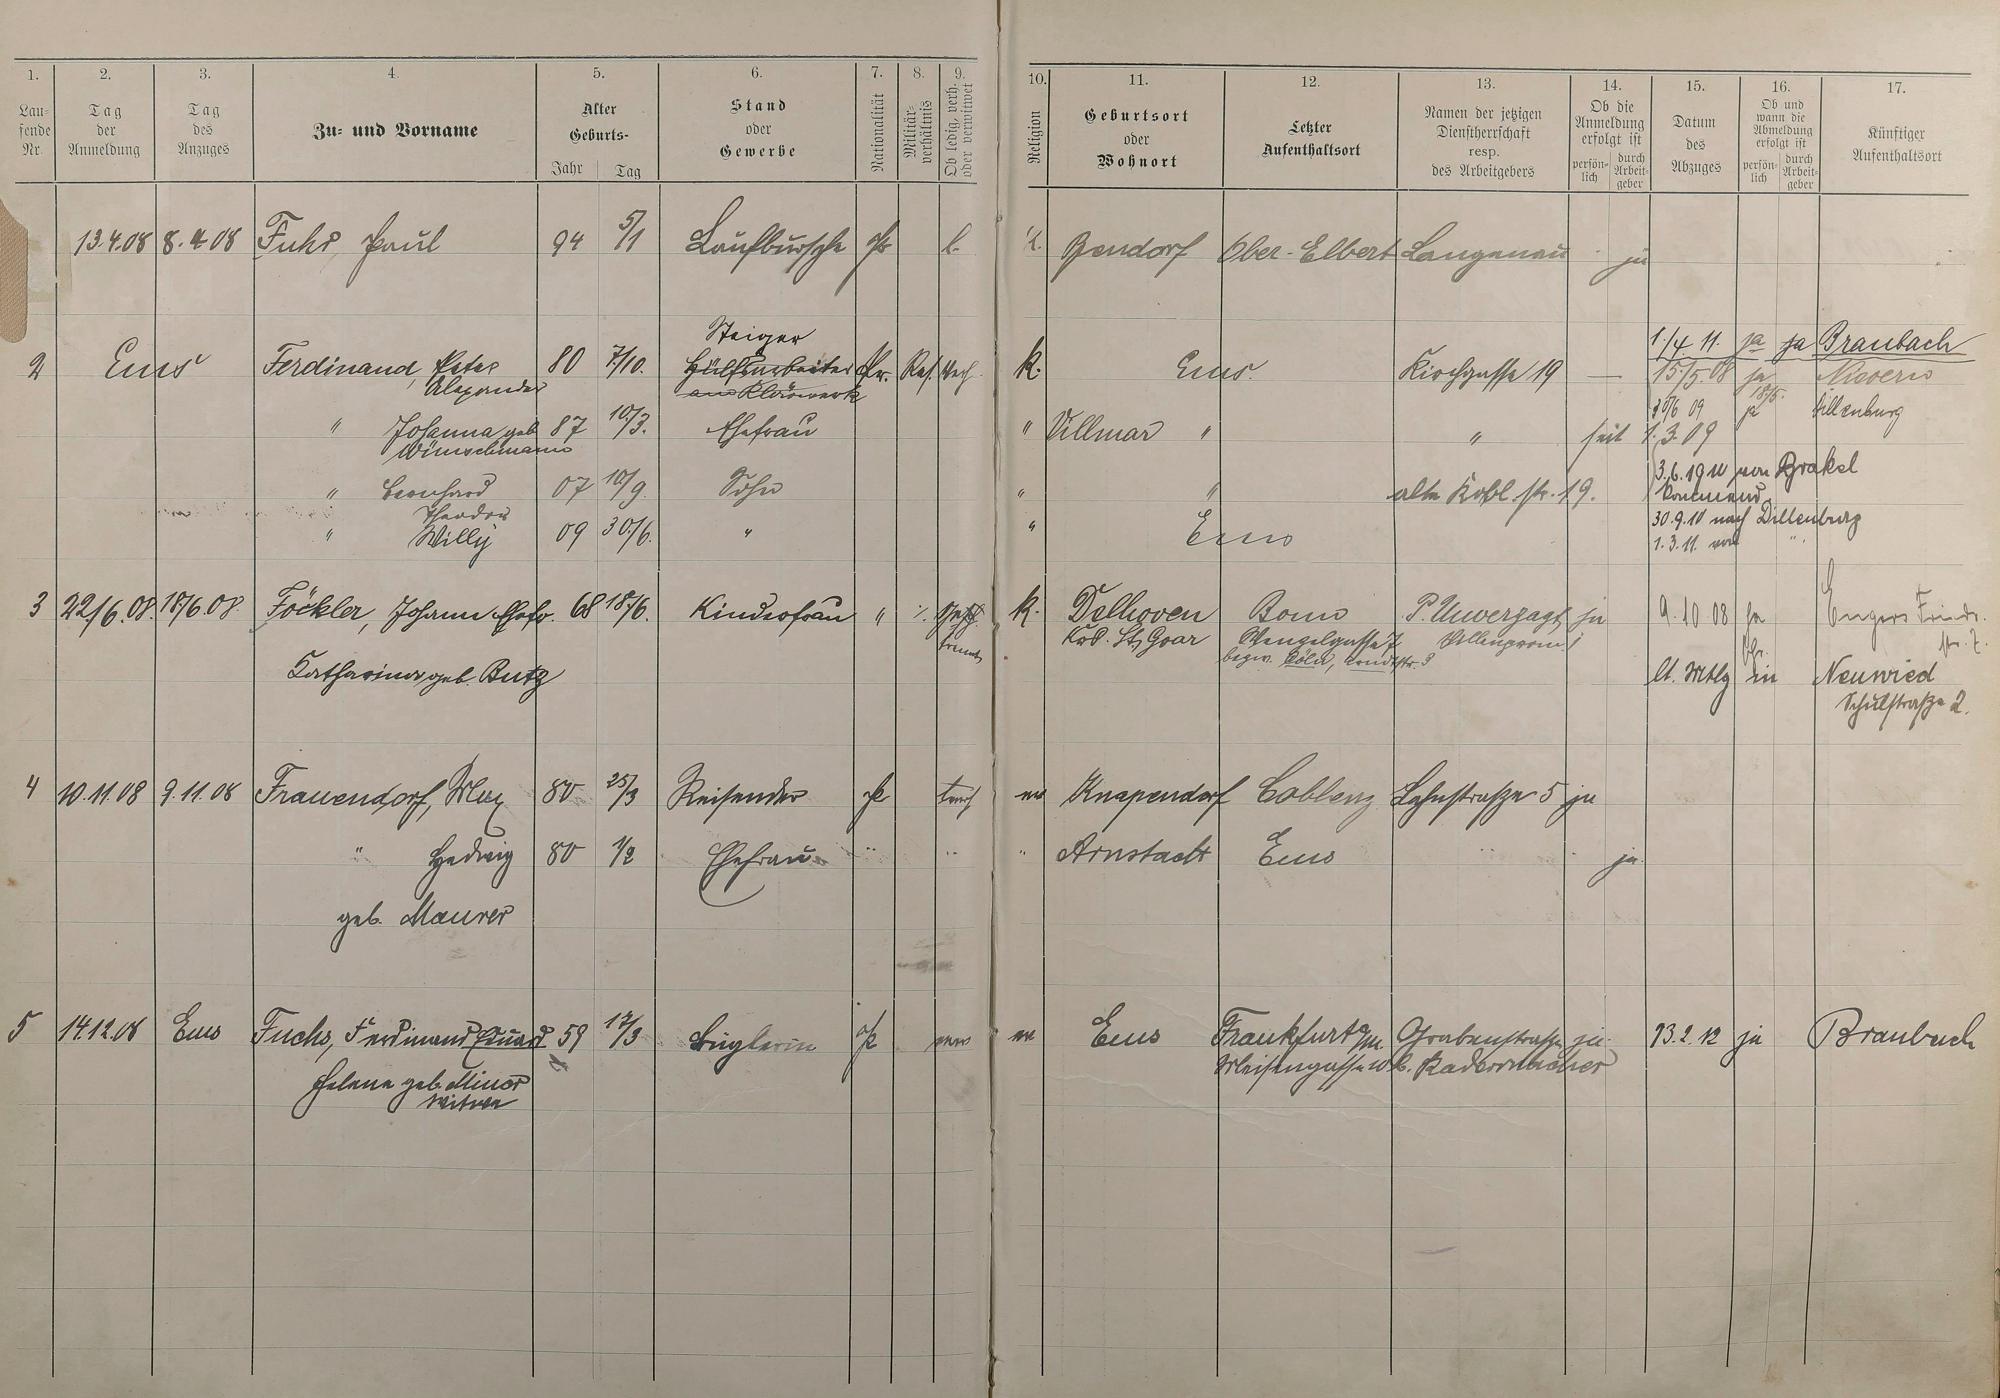 1. 2. 3. 4. 5. 6. 7. 8. 9. 10. 11. 12. 13. 14. 15. 16. 17.
Lau-
fende
Nr.
Tag
der
Anmeldung
Tag
des
Anzuges
Zu- und Vorname
Alter
Geburts-
Jahr
Tag
Stand
oder
Gewerbe
Nationalität
Militär-
verhältnis
Ob ledig, verh.
oder verwitwet
Religion
Geburtsort
oder
Wohnort
Letzter
Aufenthaltsort
Namen der jetzigen
Dienstherrschaft
resp.
des Arbeitgebers
Ob die
Anmeldung
erfolgt ist
persön-
lich
durch
Arbeit-
geber
Datum
des
Abzuges
Ob und
wann die
Abmeldung
erfolgt ist
persön-
lich
durch
Arbeit-
geber
Künftiger
Aufenthaltsort
13.4.08 8.4.08 Fuhr, Paul 94 5/1 Laufbursche Pr l. k. Bendorf Ober-Elbert Langenau ja
Steiger
1./4 11. ja ja Braubach
2 Ems Ferdinand, Peter 80 7/10. Hülfsarbeiter Pr. Res. Verh. k. Ems. Kirchgasse 19 — 15/5.08 ja Nievern
Alexander am Klärwerk 18/5.
30/6 09 ja Dillenburg
" Johanna geb. 87 10/3. Ehefrau " Villmar " " seit 1.3.09
Wünschmann
" Leonhard 07 10/9. Sohn " " alte Kobl. str. 19. 3.6.1910 von Brakel
kommend
Theodor
" Willy 09 30/6. " " Ems 30.9.10 nach Dillenburg
1.3.11. von "
3 22/6.08. 18/6.08. Föckler, Johann Ehefr. 68 18/6. Kinderfrau " k. Delhoven Bonn P. Unverzagt, ja 9.10 08 ja Engers Friedr.
str. 7.
Krs. St. Goar Wenzelgasse 7 Villenprom. 1
bezw. Cöln,
Katharina geb. Butz lt. Mtlg in Neuwied
Schulstraße 2.
4 10.11.08 9.11.08 Frauendorf, Max 80 25/3 Reisender Pr verh ev Knapendorf Coblenz Lahnstraße 5 ja
" Hedwig 80 1/2 Ehefrau " " " Arnstadt Ems " ja
geb. Maurer
5 14.12.08 Ems Fuchs, Ferdinand Eduard 59 17/3 Büglerin Pr verw ev Ems Frankfurt a/m. Grabenstraße ja 13.2.12 ja Braubach
Helene geb. Minor Meisengasse 10 b. Radermacher
Witwe